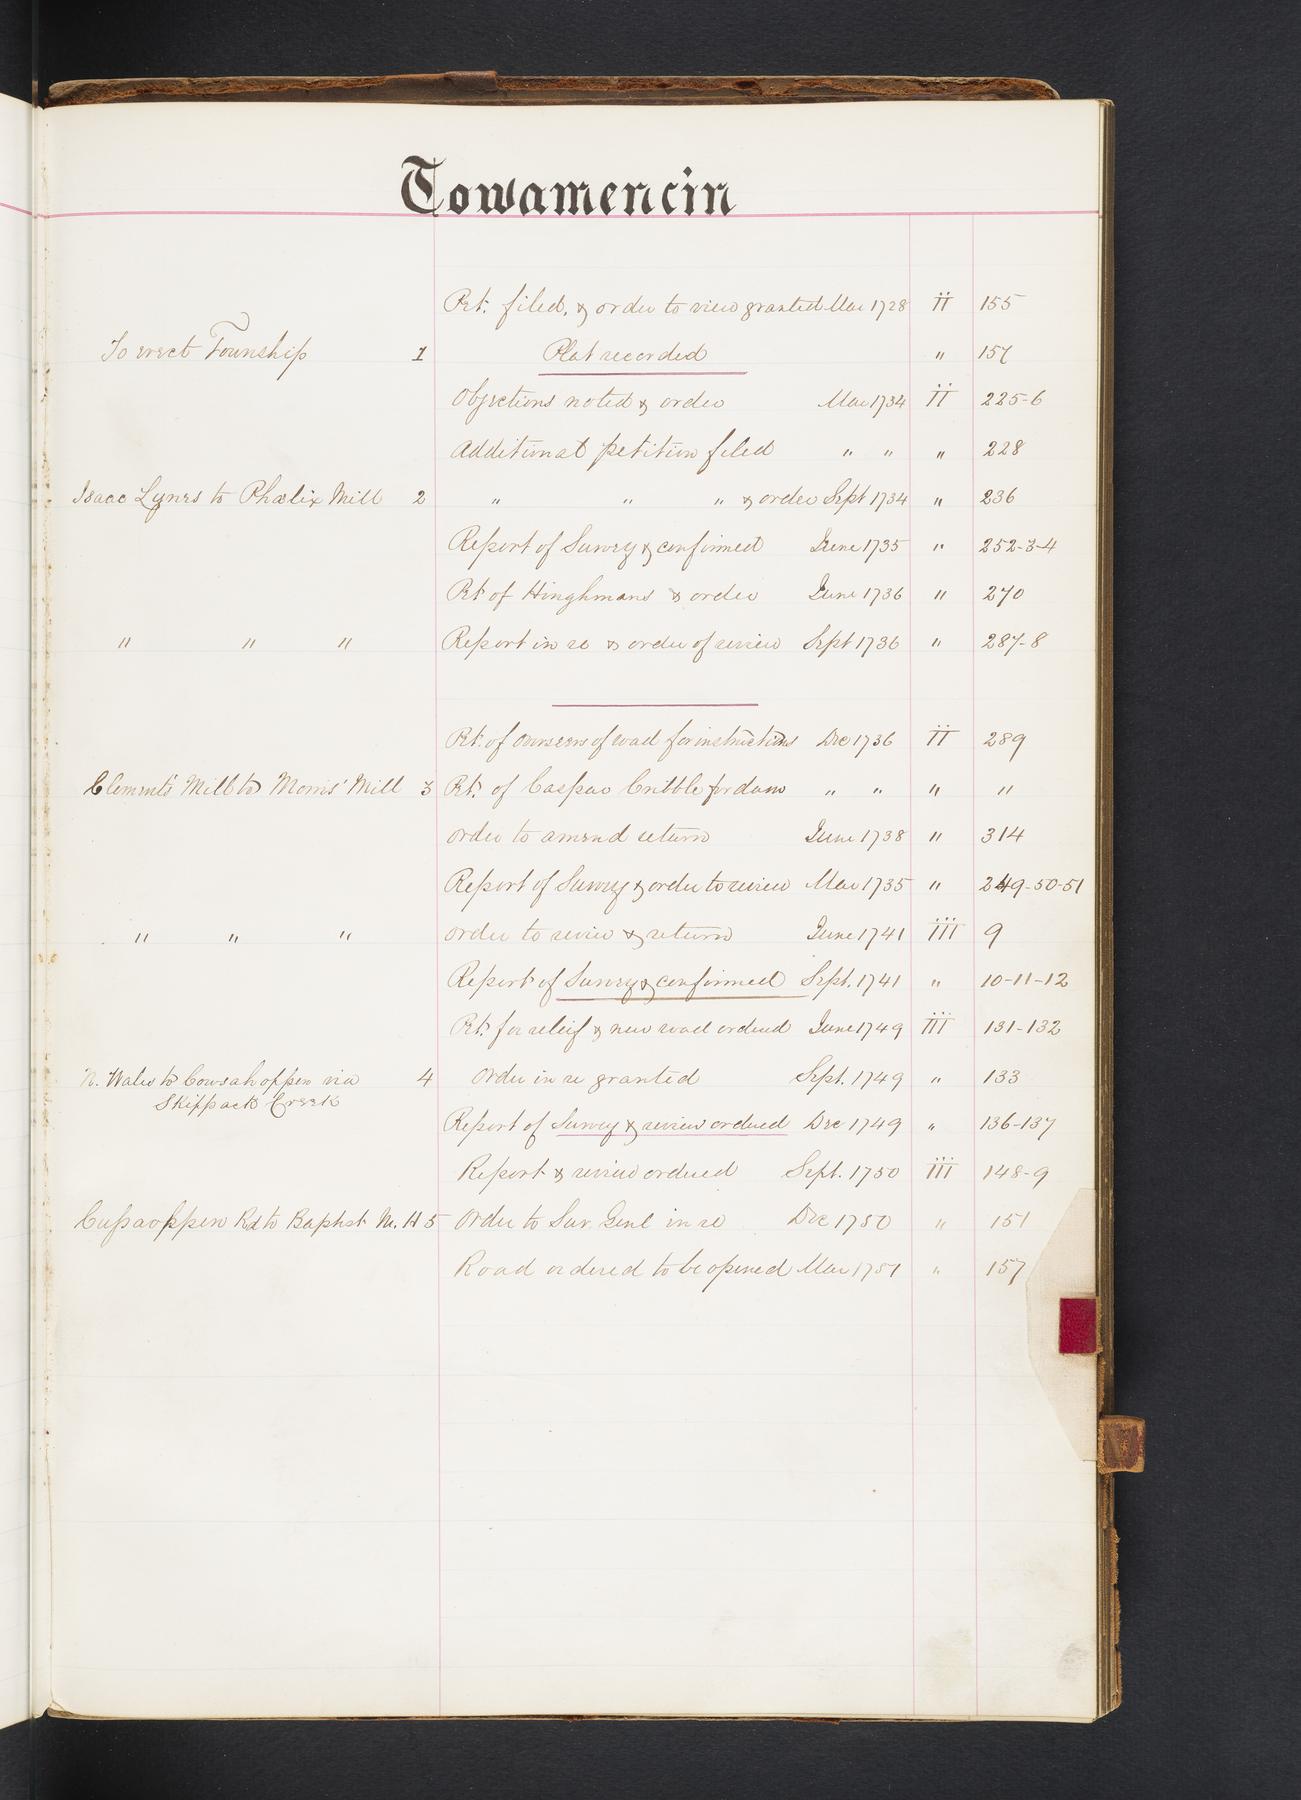 Towamencin
Pet. filed, & order to view granted Mar 1728 II 155
To erect Township 1 Plat recorded " 157
Objections noted & order Mar 1734 II 225-6
Additional petition filed " " " 228
Isaac Lynes to Phœlix Mill 2 " " " & order Sept 1734 " 236
Report of Survey & confirmed June 1735 " 252-3-4
Pet of Hinghmans & order June 1736 " 270
" " " Report in re & order of review Sept 1736 " 287-8
Pet. of overseers of road for instructions Dec 1736 II 289
Clement's Mill to Morris' Mill 3 Pet. of Caspar Cribble for dam " " " "
Order to amend return June 1738 " 314
Report of Survey & order to review Mar 1735 " 249-50-51
" " " Order to review & return June 1741 III 9
Report of Survey & confirmed Sept. 1741 " 10-11-12
Pet. for releif & new road ordered June 1749 III 131-132
N. Wales to Cowsahoppen via 4 Order in re granted Sept. 1749 " 133
Skippack Creek
Report of Survey & review ordered Dec 1749 " 136-137
Report & review ordered Sept. 1750 III 148-9
Cussaoppen Rd to Baptist M. H 5 Order to Sur. Genl in re Dec 1750 " 151
Road ordered to be opened Mar 1751 " 157